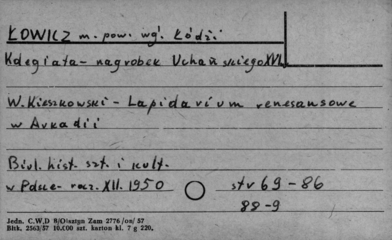 ŁOWICZ m. pow. wg'. Łódzi
Kolegiata - nagrobek Uchańskiego XVI.
W. Kieszkowski - Lapidarium renesansowe
w Arkadii
Biul. hist. szt. i kult.
w Polsce - rocz. XII. 1950 str 69 - 86
88 - 9
Jedn. C.W.D 8/Olsztyn Zam 2776/oz/57
Bltk. 2563/57 10.000 szt. karton kl. 7 g 220.